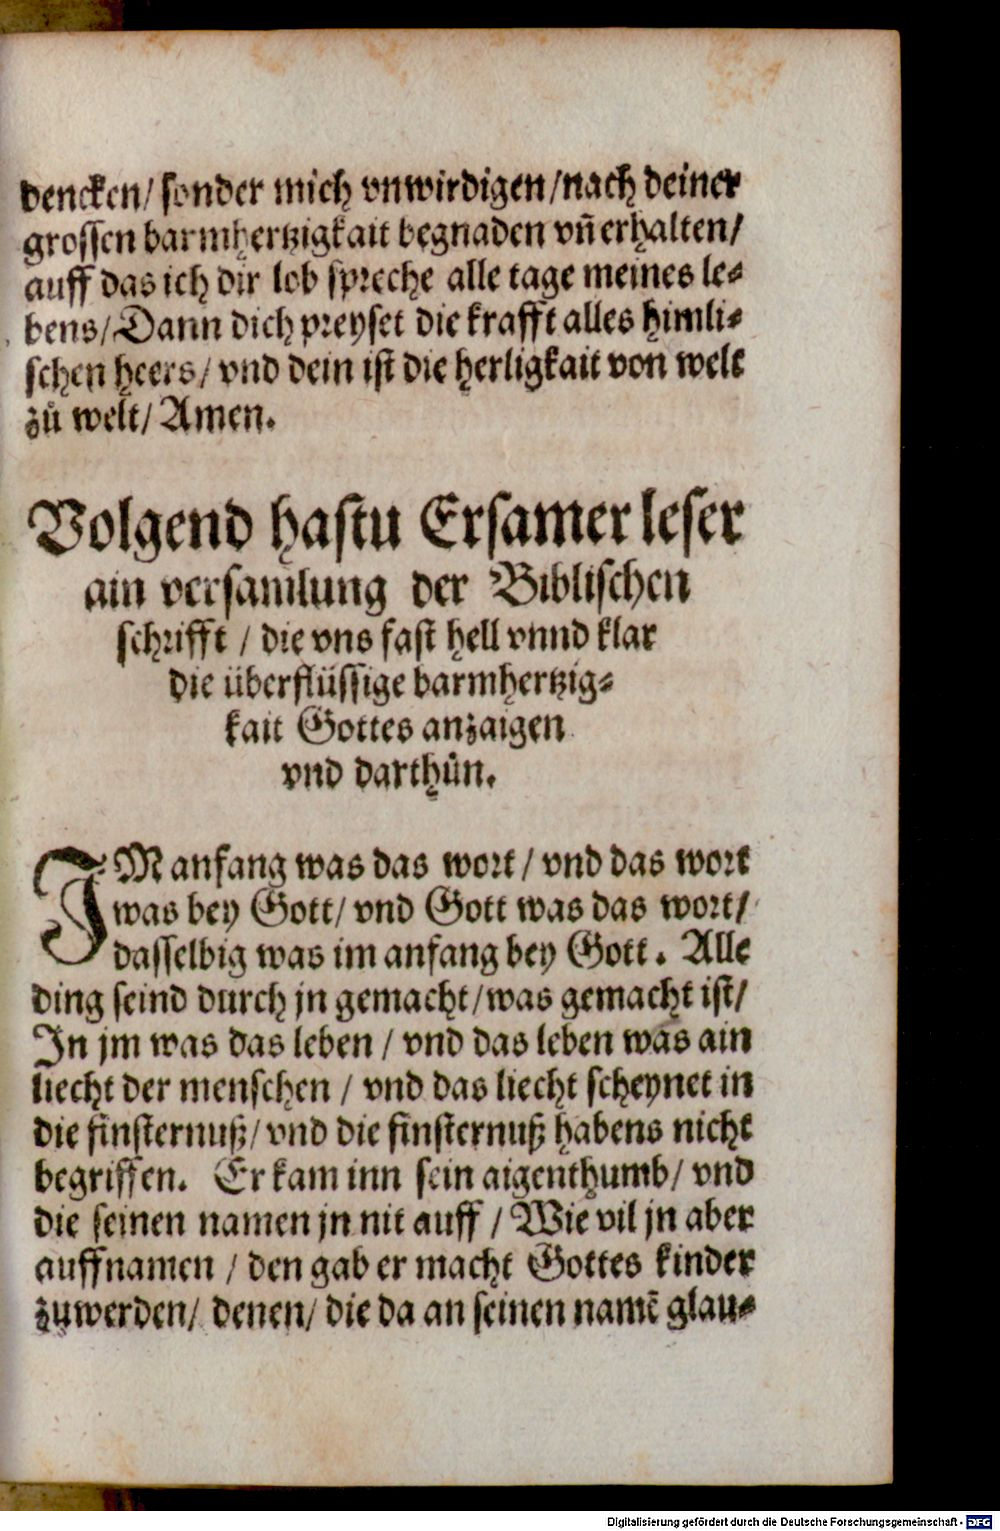 dencken/ sonder mich vnwirdigen/nach deiner
grossen barmhertzigkait begnaden vñ erhalten/
auff das ich dir lob spreche alle tage meines le⸗
bens/Dann dich preyset die krafft alles himli⸗
schen heers/ vnd dein ist die herligkait von welt
zů welt/ Amen.
Volgend hastu Ersamer leser
ain versamlung der Biblischen
schrifft / die vns fast hell vnnd klar
die überflüssige barmhertzig⸗
kait Gottes anzaigen
vnd darthůn.
IM anfang was das wort / vnd das wort
was bey Gott/ vnd Gott was das wort/
dasselbig was im anfang bey Gott. Alle
ding seind durch jn gemacht/was gemacht ist/
In jm was das leben / vnd das leben was ain
liecht der menschen / vnd das liecht scheynet in
die finsternuß/ vnd die finsternuß habens nicht
begriffen. Er kam inn sein aigenthumb/ vnd
die seinen namen jn nit auff / Wie vil jn aber
auffnamen / den gab er macht Gottes kinder
zuwerden/ denen/ die da an seinen namē glau⸗
Digitalisierung gefördert durch die Deutsche Forschungsgemeinschaft - DFG